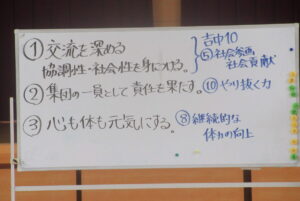 ①交流を深める
協調性・社会性を身につける。
吉中10
⑤社会参画
社会貢献
②集団の一員として責任を果たす。
⑩やり抜く力
③心も体も元気にする。
⑧継続的な
体力の向上